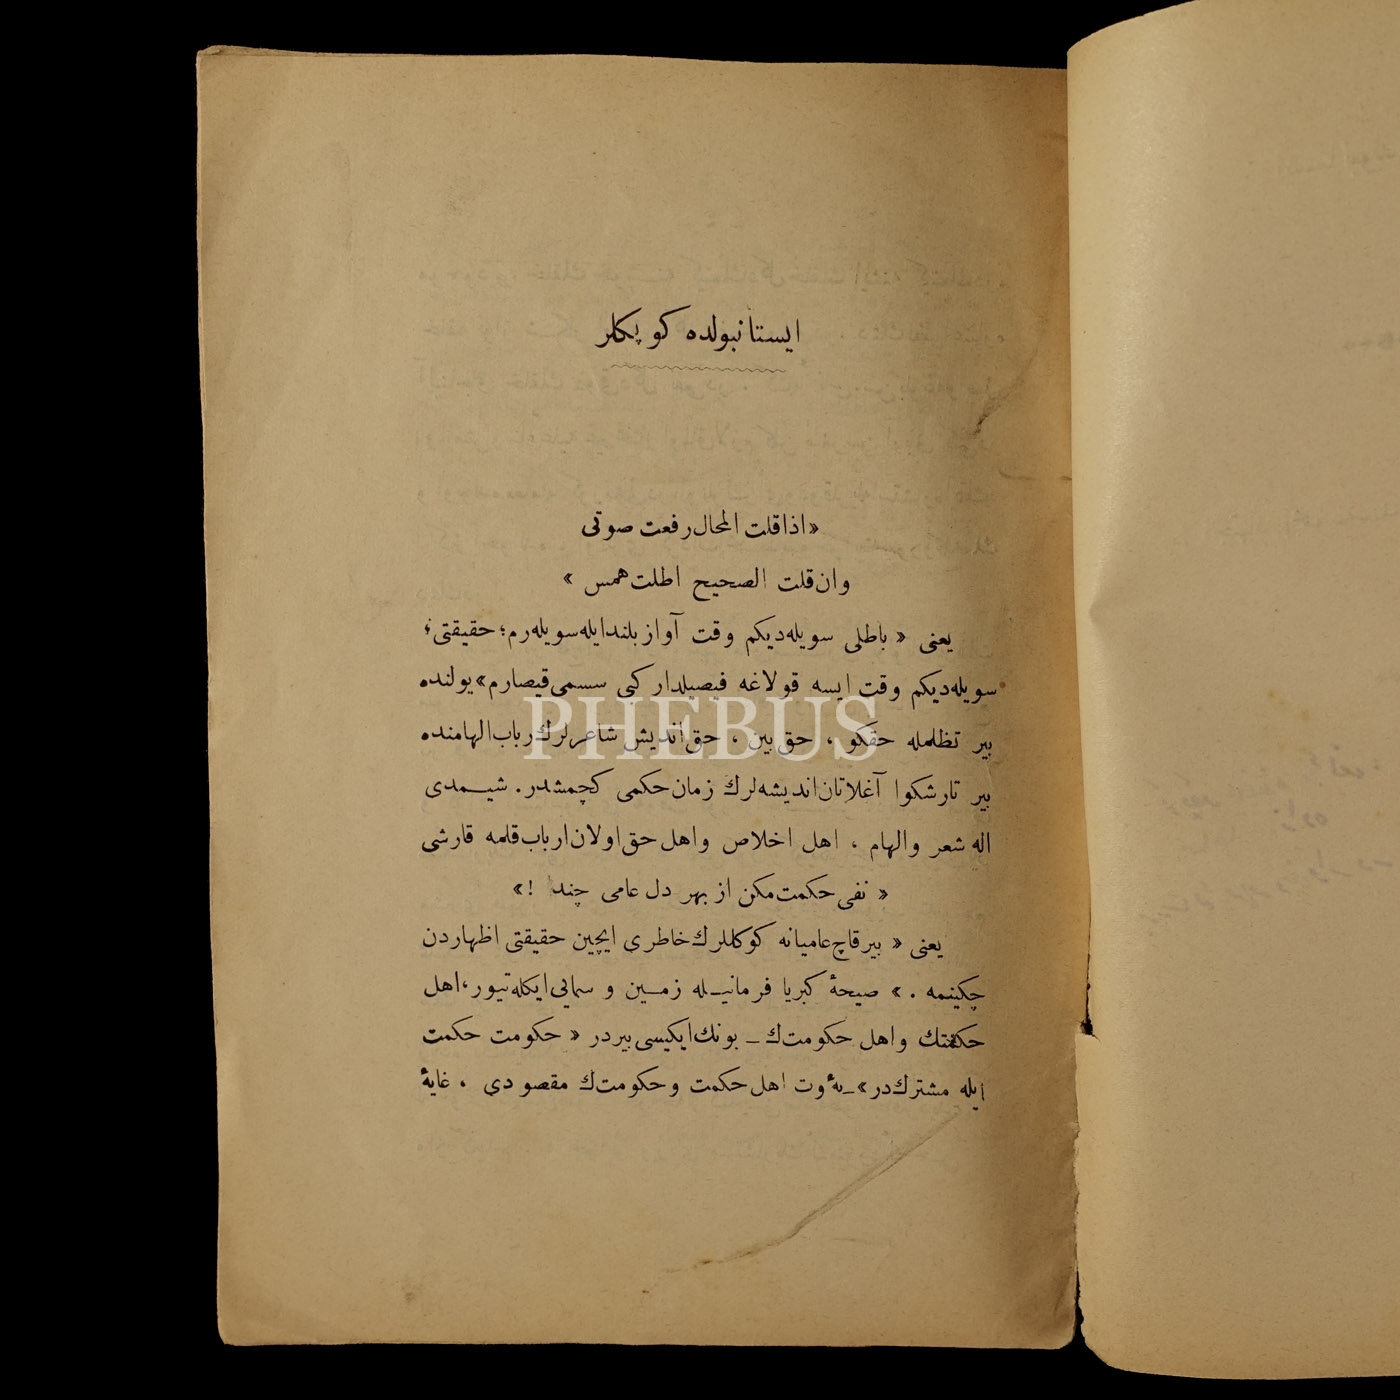 ایستانبولده کوپکلر
«اذاقلت المحال رفعت صوتی
وان قلت الصحیح اطلت همس »
یعنی « باطلی سویله‌دیکم وقت آواز بلندایله سویله‌رم؛ حقیقتی؛
سویله‌دیکم وقت ایسه قولاغه فیصیلدار کبی سسمی قیصارم» یولنده
بیر تظلمله حقکو ، حق بین ، حق اندیش شاعرلرك رباب الهامنده
بیر تارشکوا آغلاتان اندیشه‌لرك زمان حکمی کچمشدر. شیـمدی
اله شعر والهام ، اهل اخلاص واهل حق اولان ارباب قلمه قارشی
« نفی حکمت مکن از بهر دل عامی چند !»
یعنی « بیرقاچ عامیانه کوکللرك خاطری ایچین حقیقتی اظهاردن
چکینمه . » صیحهٔ کبریا فرمانیـله زمـین و سمایی ایکله‌تیور، اهل
حکمتك واهل حکومت‌ك ـ بونك ایکیسی بیردر « حکومت حکمت
ایله مشترك‌در» ـ اهل حکمت وحکومت‌ك مقصودی ، غایهٔ
PHEBUS